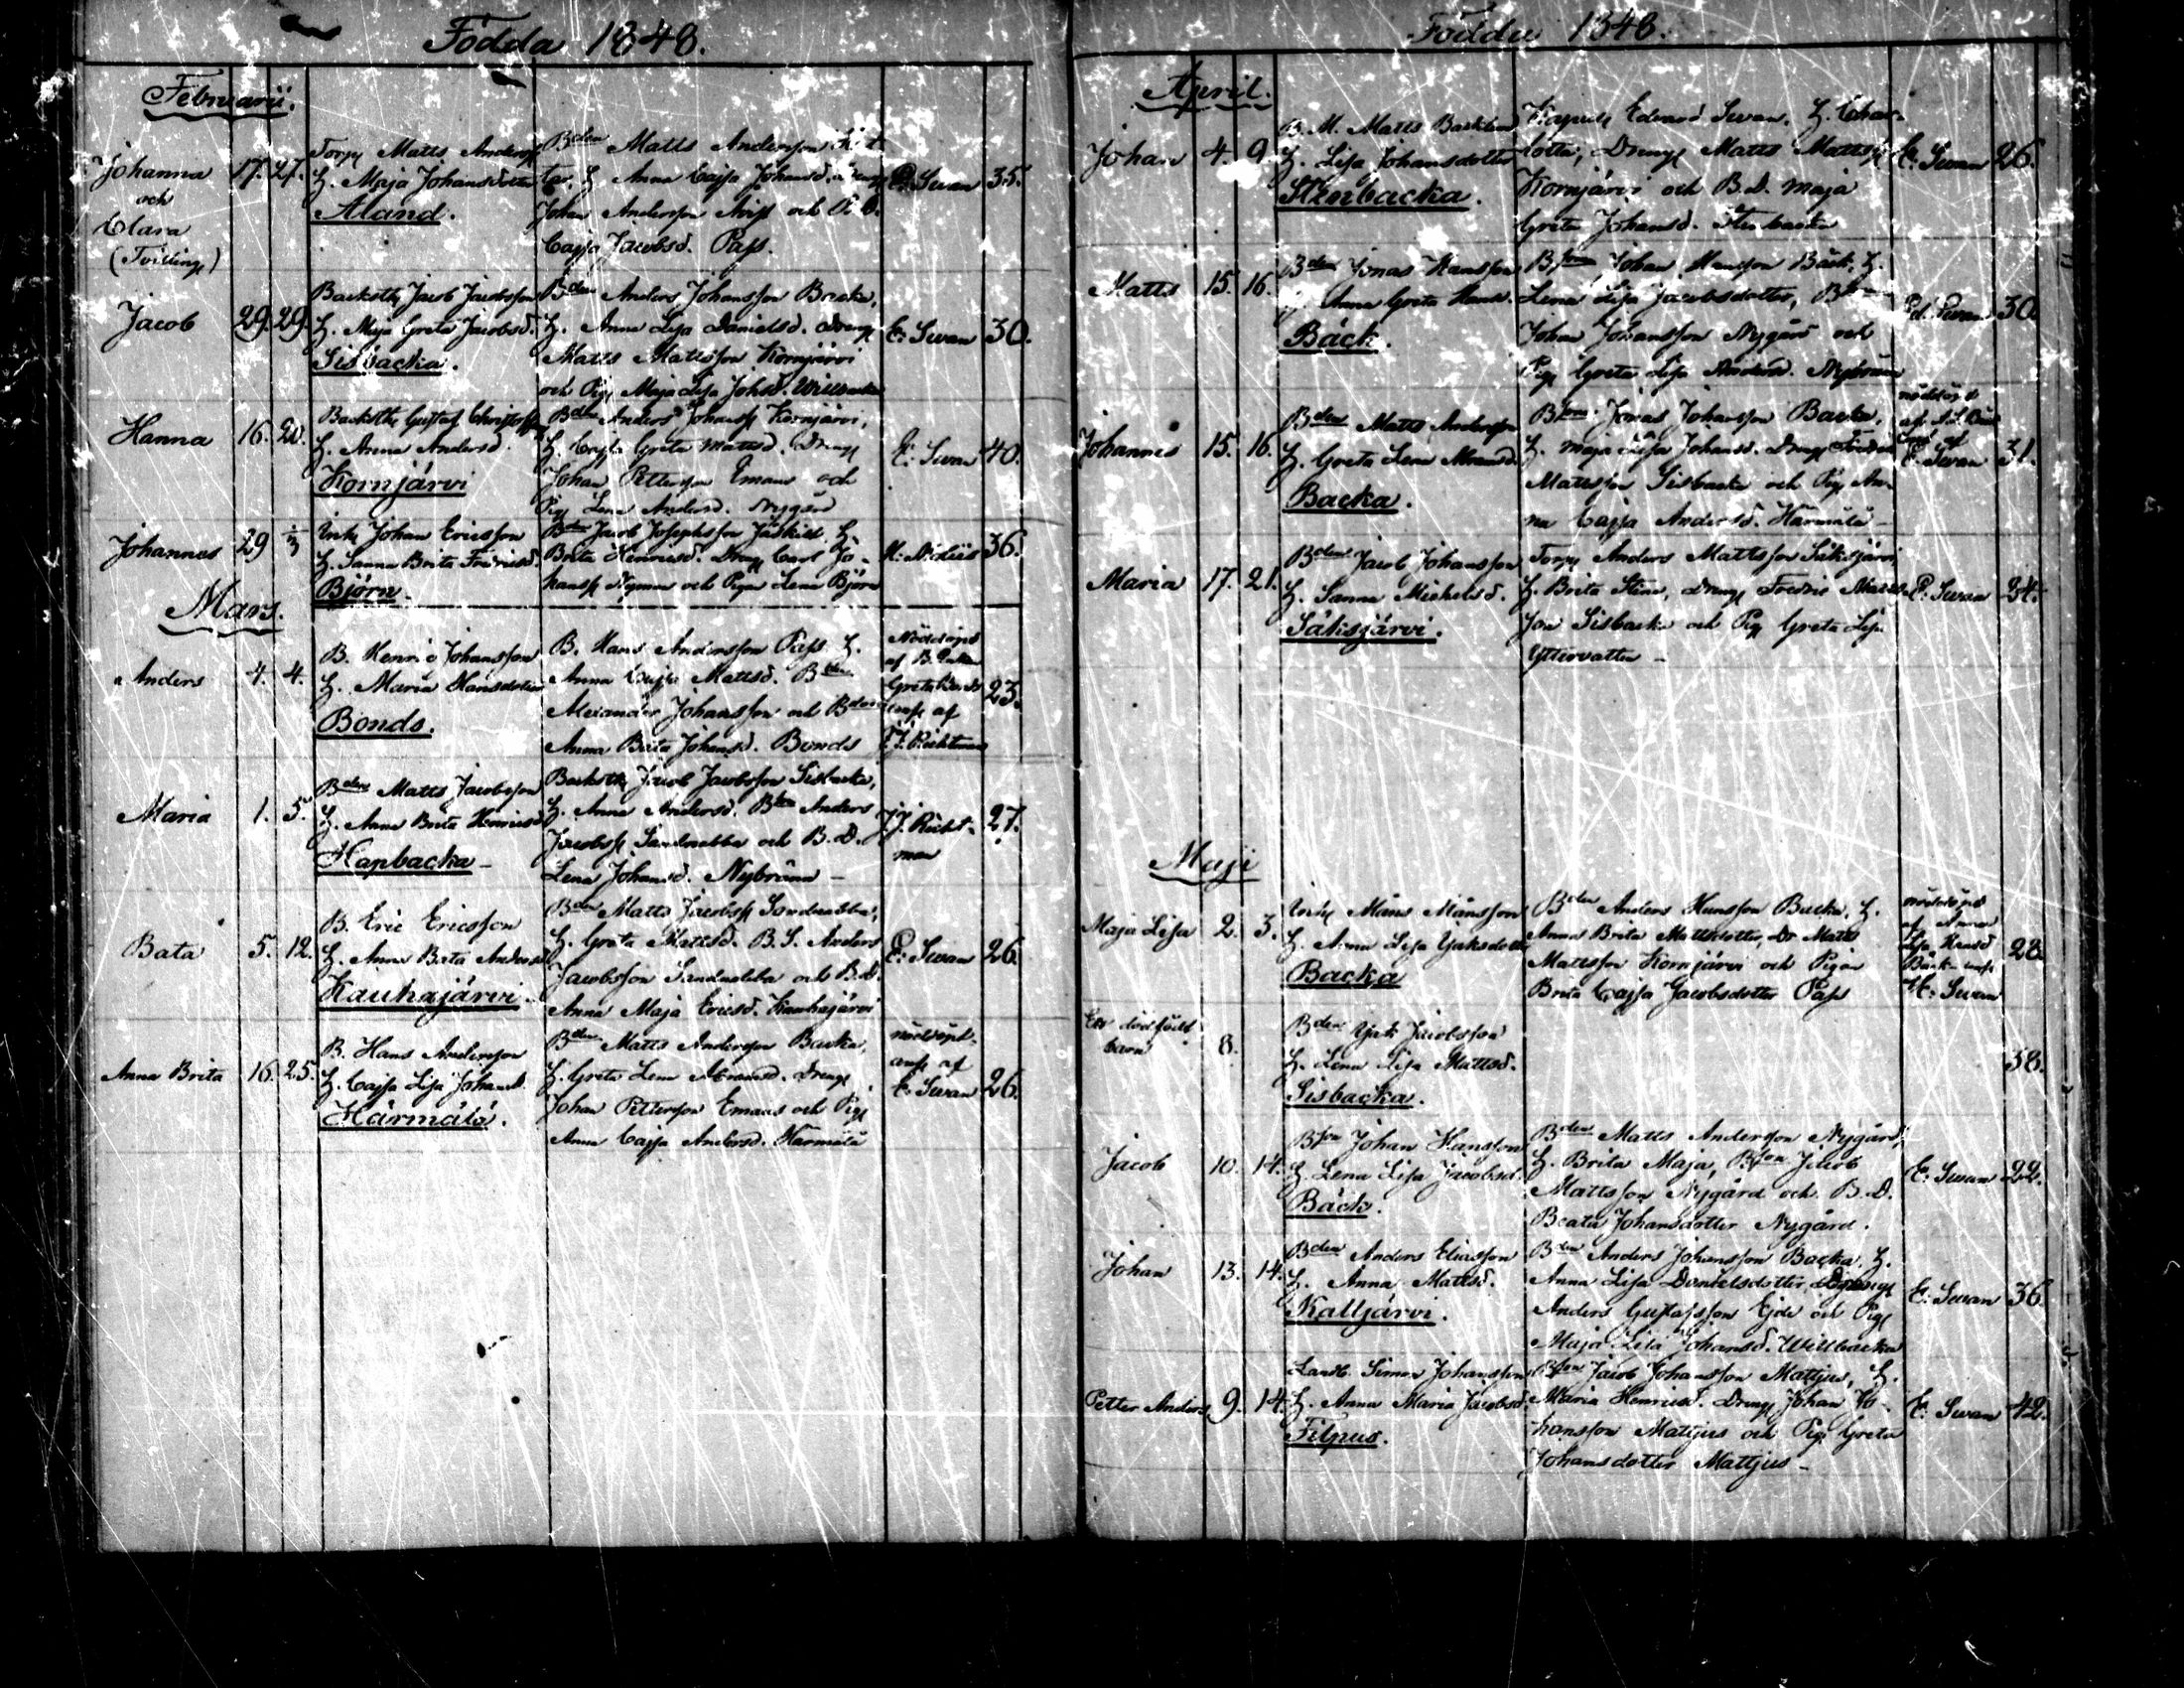 Födda 1848.
Februarii.
Johanna
och
Clara
(Tvilling)
17. 27.
Torp Matts Anderss
H. Maja Johansdotter
Åland.
Bden Matts Andersson
H. Anna Cajsa Johansd.
Johan Andersson och B. D.
Cajsa Jacobsd. Pass.
E. Swan 35.
Jacob 29. 29.
Backstk Jacob Jacobsson
H. Maja Greta Jacobsd.
Sisbacka.
Bden Anders Johansson Backa,
H. Anna Lisa Danielsd. Dreng
Matts Mattsson Kornjärvi
och Pig Maja Lisa Johsd. Willbacka
E. Swan 30.
Hanna 16. 20.
Backstk Gustaf Christoffs
H. Anna Andersd.
Kornjärvi
Bden Anders Johanss Kornjärvi,
H. Cajsa Greta Mattsd. Dreng
Johan Pettersson Emaus och
Pig Lena Andersd. Nygård
E. Swan 40.
Johannes 29 1/3
Inh Johan Ericsson
H. Sanna Brita Fredriksd.
Björn.
Bden Jacob Josephsson Jäskild, H.
Brita Henricsd. Dreng Carl Jo-
hanss Nyman och Pigan Lena Björn
36.
Mars.
Anders 4. 4.
B. Henric Johansson
H. Maria Hansdotter
Bonds.
B. Hans Andersson Pass. H.
Anna Cajsa Mattsd. Bden
Alexander Johansson och
Anna Beata Johansd. Bonds
Nöddöpt
af B. Enkan
Greta Bonds
conf af
J. J. Richtman
23.
Maria 1. 5.
Bden Matts Jacobsson
H. Anna Brita Henricsd
Hapbacka -
Backstk Jacob Jacobsson Sisbacka,
H. Anna Andersd. Bson Anders
Jacobss Sandnabba och B. D.
Lena Johansd. Nybränn -
J. J. Richt-
man
27.
Bata 5. 12.
B. Eric Ericsson
H. Anna Bata Andersd
Kauhajärvi.
Bden Matts Jacobss Sandnabba,
H. Greta Mattsd. B. S. Anders
Jacobsson Sandnabba och B. D.
Anna Maja Ericsd. Kauhajärvi
E. Swan 26.
Anna Brita 16. 25.
B. Hans Andersson
H. Cajsa Lisa Johansd.
Härmälä.
Bden Matts Andersson Backa,
H. Greta Lena Abramsd. Dreng
Johan Pettersson Emaus och Pig
Anna Cajsa Andersd. Härmälä
nöddöpt
conf af
E. Swan 26.
Födda 1848.
April.
Johan 4. 9.
B. M. Matts Backlund
H. Lisa Johansdotter
Stenbacka.
Edvard Swan, H. Char-
lotta, Dreng Matts Mattss
Kornjärvi och B. D. Maja
Greta Johansd. Stenbacka
E. Swan 26.
Matts 15. 16.
Bden Jonas Hansson
H. Anna Greta Hansd.
Bäck.
Bson Johan Hansson Bäck, H.
Lena Lisa Jacobsdotter, Bson
Johan Johansson Nygård och
Pig Greta Lisa Andersd. Nybränn
Ed. Swan 30.
Johannes 15. 16.
Bden Matts Andersson
H. Greta Lena Abramsd.
Backa.
Bson Jonas Johansson Backa,
H. Maja Lisa Johansd. Dreng Fredric
Mattsson Sisbacka och Pig An-
na Cajsa Andersd. Härmälä -
nöddöpt
conf af
E. Swan
31.
Maria 17. 21.
Bden Jacob Johansson
H. Sanna Michelsd.
Säksjärvi.
Torp Anders Mattsson Säksjärvi,
H. Brita Stina, Dreng Fredric Matts-
son Sisbacka och Pig Greta Lisa
Yttervatten -
E. Swan 34.
Maji
Maja Lisa 2. 3.
Inh Måns Månsson
H. Anna Lisa Isaksdotter
Backa
Bden Anders Hansson Backa, H.
Anna Brita Mattsdotter, Dr Matts
Mattsson Kornjärvi och Pigan
Brita Cajsa Jacobsdotter Pass
nöddöpt
af Anna
Lisa Hansd
Bäck conf
E. Swan
28.
Ett dödfödt
barn
8.
Bden Isak Jacobsson
H. Lena Lisa Mattsd.
Sisbacka.
38.
Jacob 10. 14.
Bson Johan Hansson
H. Lena Lisa Jacobsd.
Bäck.
Bden Matts Andersson Nygård,
H. Brita Maja, Bson Jacob
Mattsson Nygård och B. D.
Beata Johansdotter Nygård.
E. Swan 22.
Johan 13. 14.
Bden Anders Eliasson
H. Anna Mattsd.
Kaltjärvi.
Bden Anders Johansson Backa, H.
Anna Lisa Danielsdotter, Dreng
Anders Gustafsson Ejde och Pig
Maja Lisa Johansd. Willbacka
E. Swan 36.
Petter Anders 9. 14.
Landb. Simon Johansson
H. Anna Maria Jacobsd.
Filpus.
Bson Jacob Johansson Mattjus, H.
Maria Henricsd. Dreng Johan Jo-
hansson Mattjus och Pig Greta
Johansdotter Mattjus -
E. Swan 42.